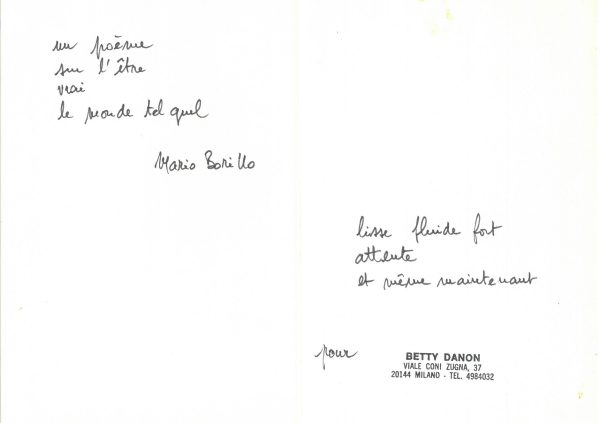 un poème
sur l'être
vrai
le monde tel quel
Mario Borillo
lisse fluide fort
attente
et même maintenant
pour
BETTY DANON
VIALE CONI ZUGNA, 37
20144 MILANO - TEL. 4984032